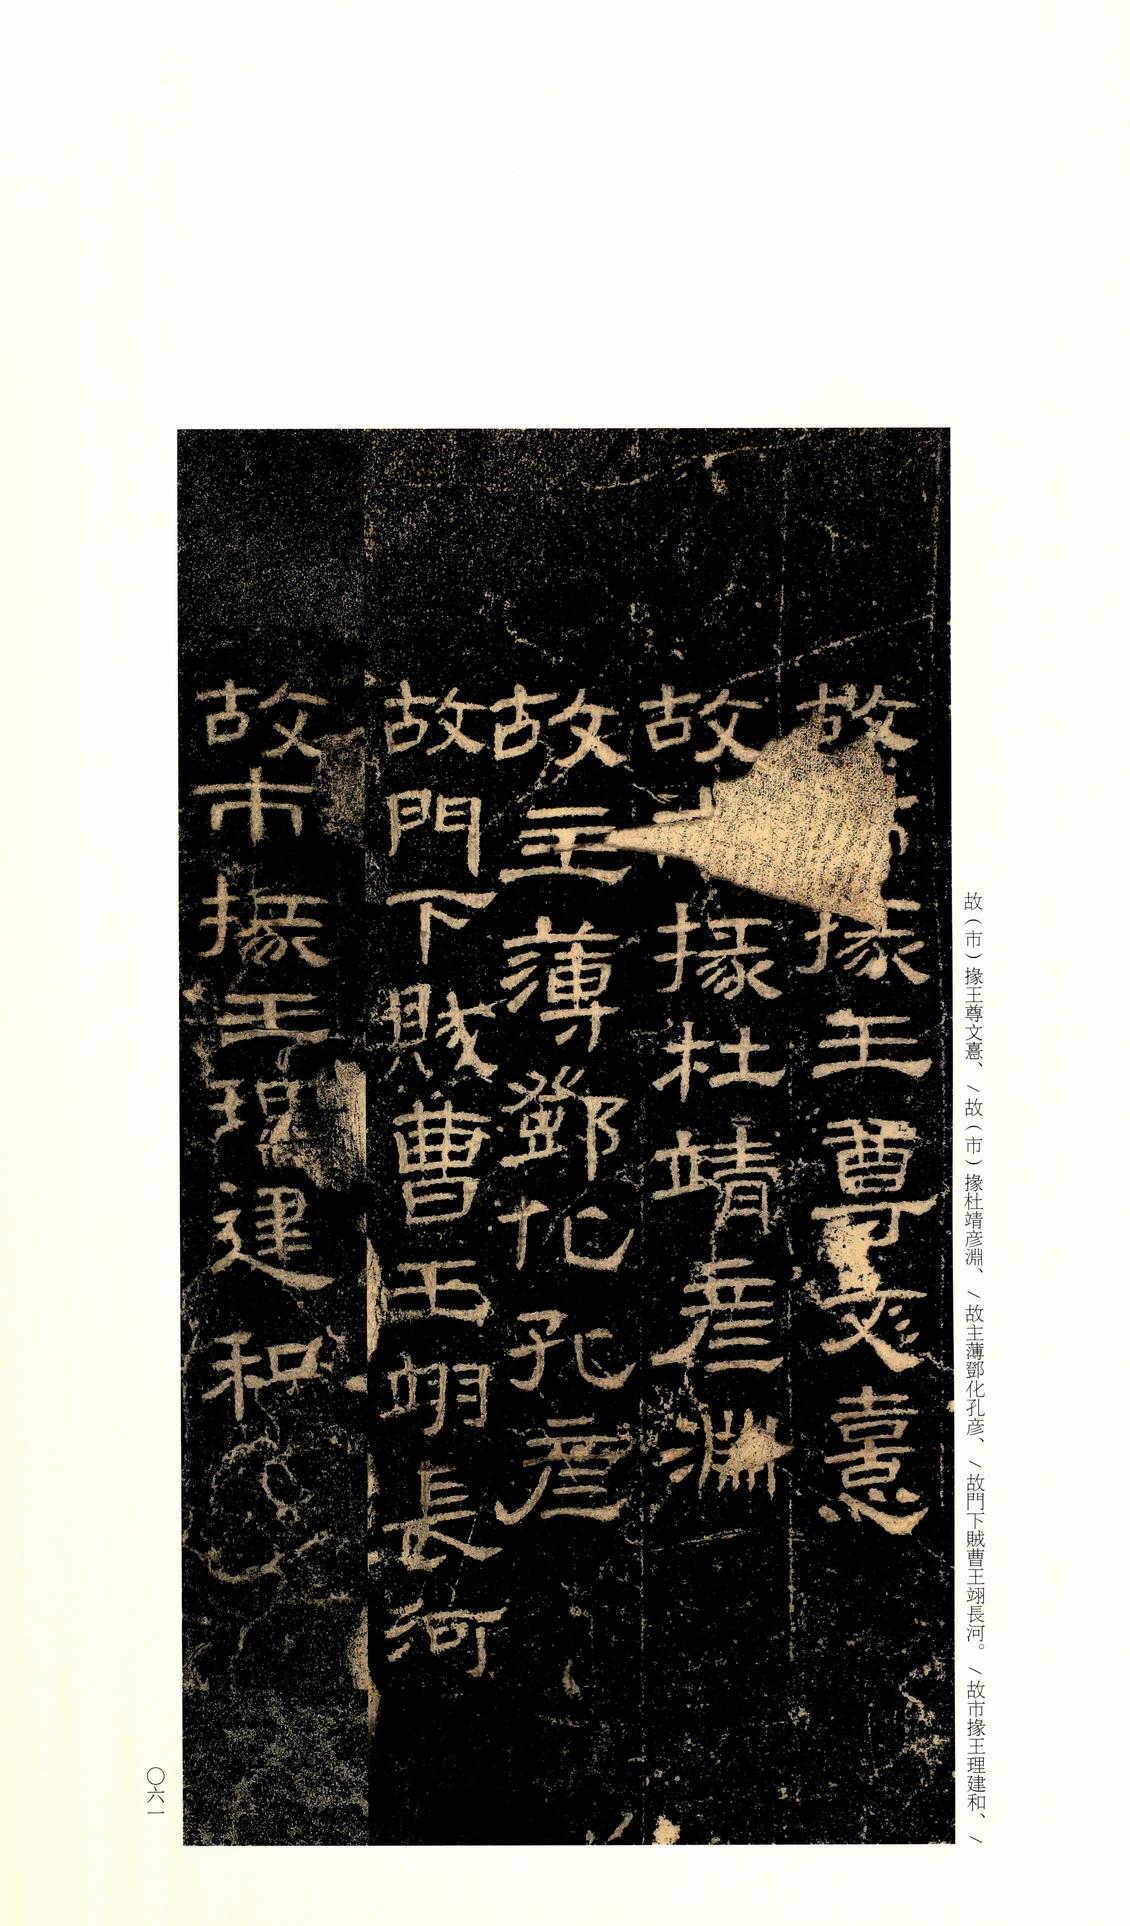 故(市)掾王尊文憙、/故(市)掾杜靖彦淵、/故主薄鄧化孔彦、/故門下賊曹王翊長河。/故市掾王理建和、/
故 掾王尊文憙
故 掾杜靖彦淵
故主薄鄧化孔彦
故門下賊曹王翊長河
故市掾王理建和
〇六一